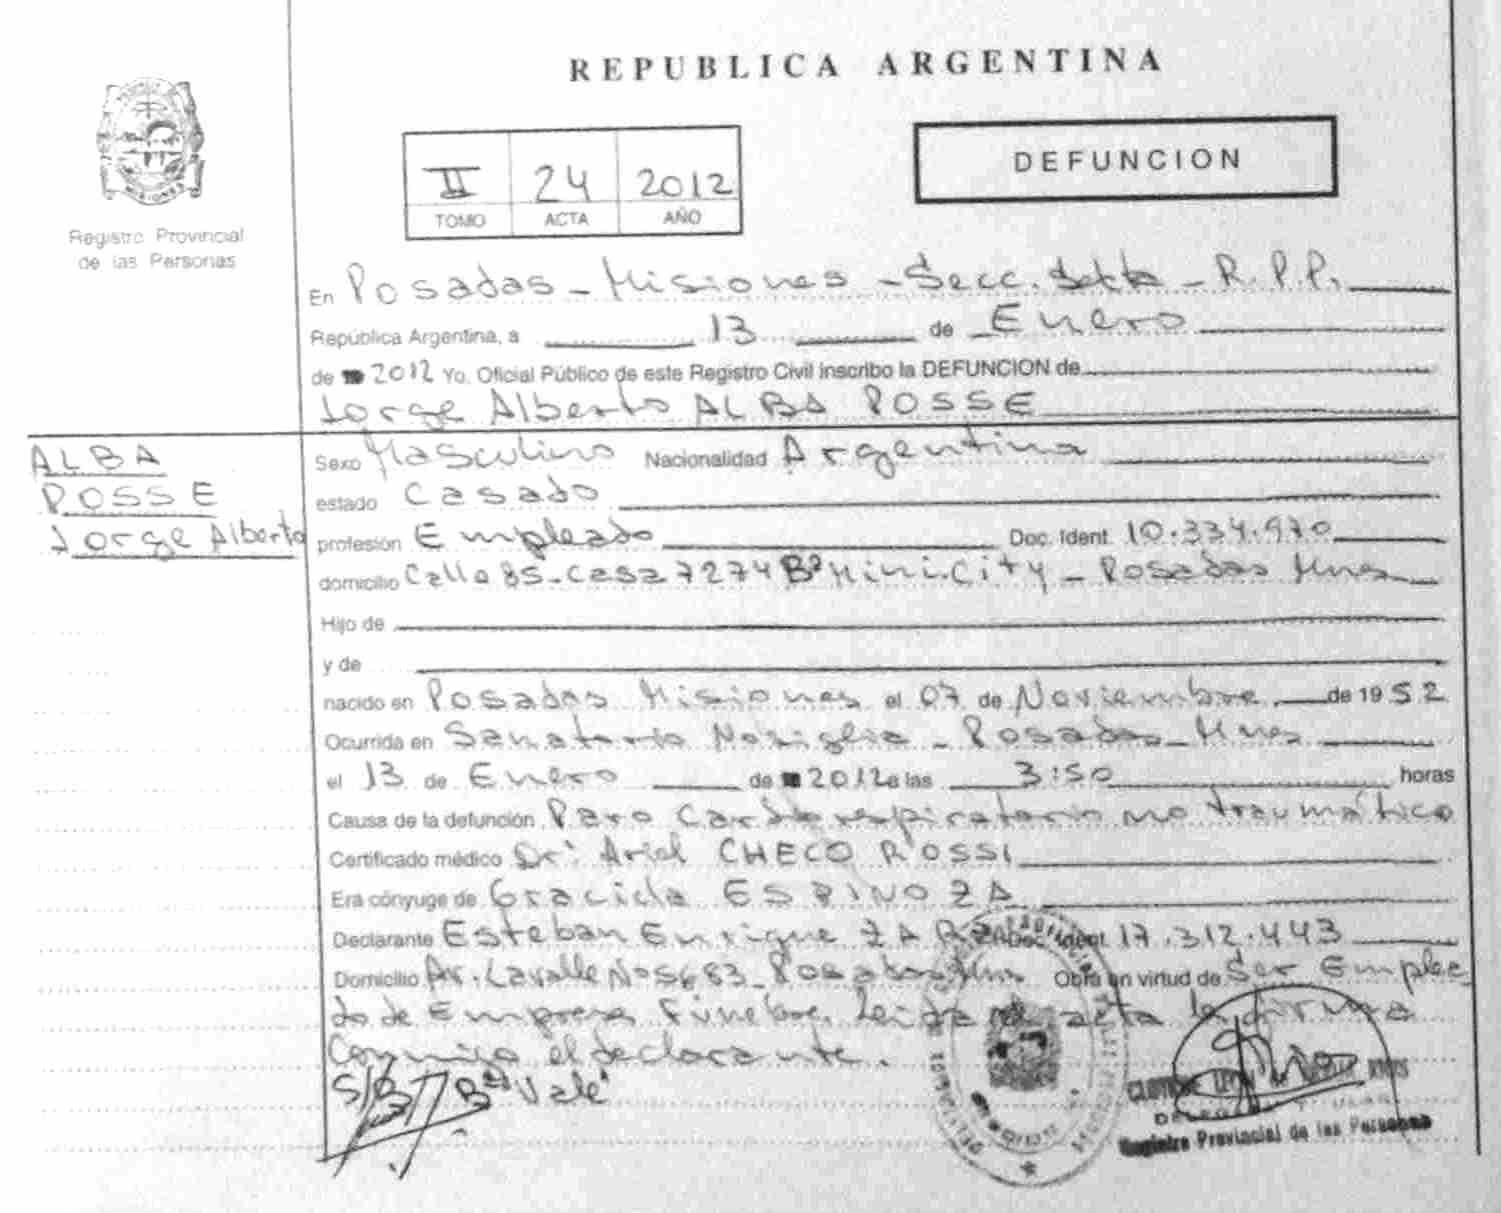 REPUBLICA ARGENTINA
DEFUNCION
II 24 2012
TOMO ACTA AÑO
MISIONES
Registro Provincial
de las Personas
En Posadas - Misiones - Secc. - R.P.P.
República Argentina, a 13 de Enero
de 2012 Yo, Oficial Público de este Registro Civil inscribo la DEFUNCION de
Jorge Alberto ALBA POSSE
ALBA
POSSE
Jorge Alberto
Sexo Masculino Nacionalidad Argentina
estado Casado
profesión Empleado Doc. Ident. 10.334.970
domicilio Calle 85 - Casa 7274 Bº Mini-City - Posadas Mnes
Hijo de
y de
nacido en Posadas Misiones el 07 de Noviembre de 1952
Ocurrida en Sanatorio Nosiglia - Posadas - Mnes
el 13 de Enero de 2012 a las 3:50 horas
Causa de la defunción Paro Cardiorespiratorio no traumático
Certificado médico Dr: Ariel CHECO ROSSI
Era cónyuge de Graciela ESPINOZA
Declarante Esteban Enrique Doc. Ident. 17.312.443
Domicilio Av. Lavalle Nº 5683 - Posadas Mns. Obra en virtud de Ser Emplea
do de Empresa Fúnebre. Leida el acta la firma
Conmigo el declarante.
S/B Vale
Registro Provincial de las Personas